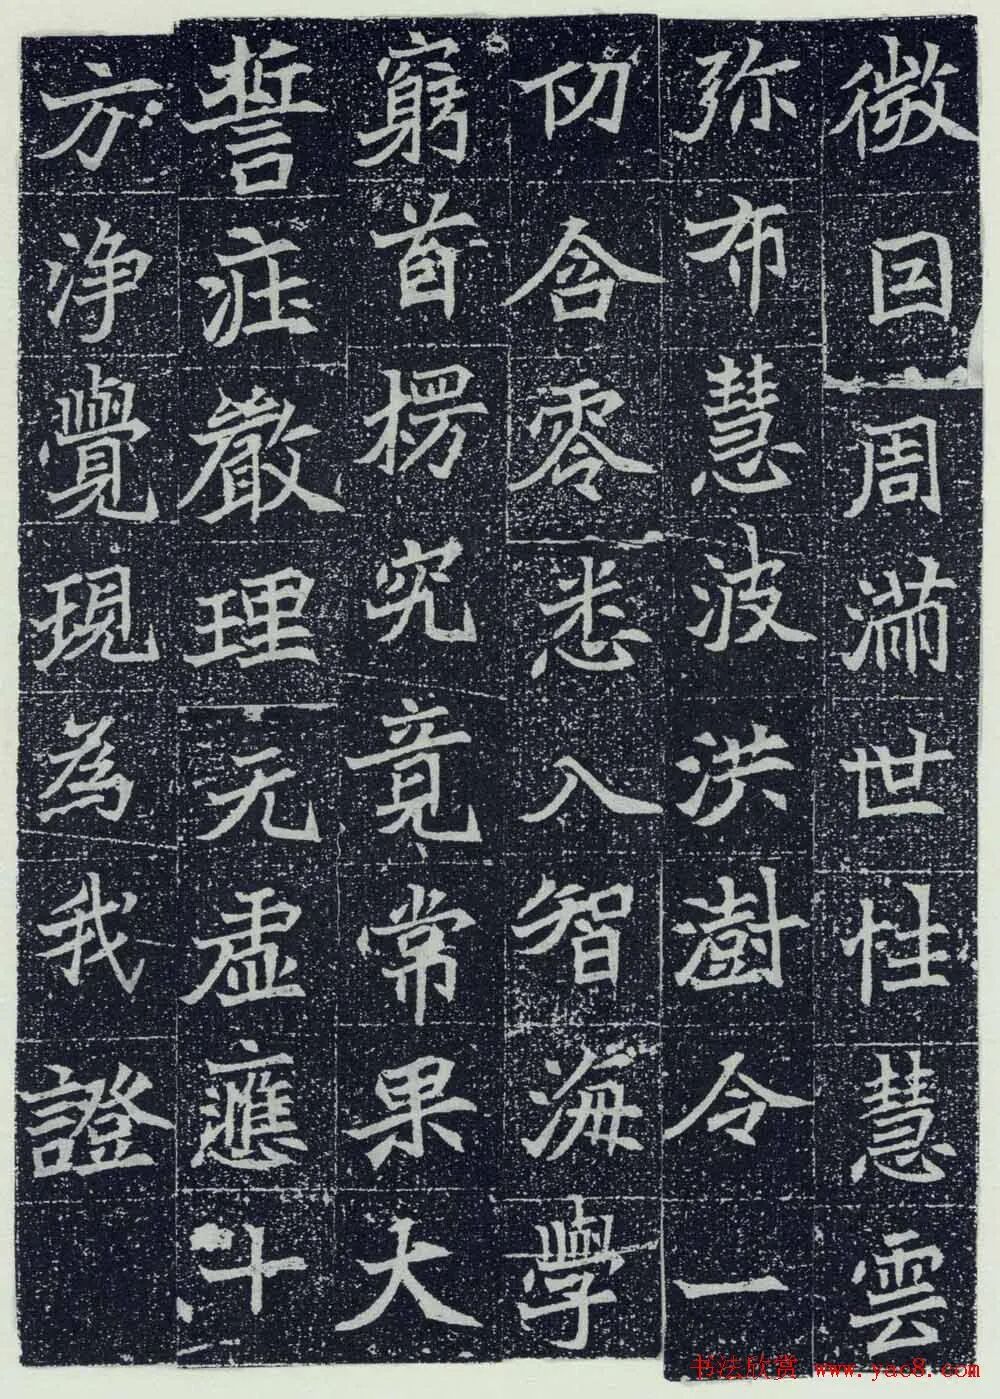 微囙周滿世性慧雲
弥布慧波洪澍令一
切含零悉入智海學
窮首楞究竟常果大
誓㽵嚴理无虛應十
方淨覺現為我證
书法欣赏 www.yac8.com